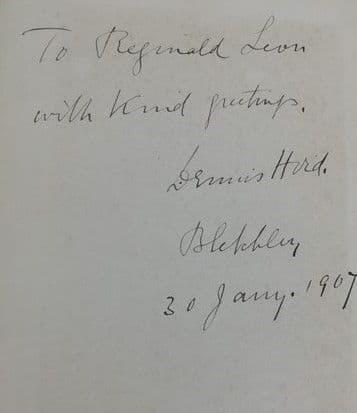 To Reginald Leon
with Kind greetings.
Dennis Hird.
Bletchley
30 Jany. 1907